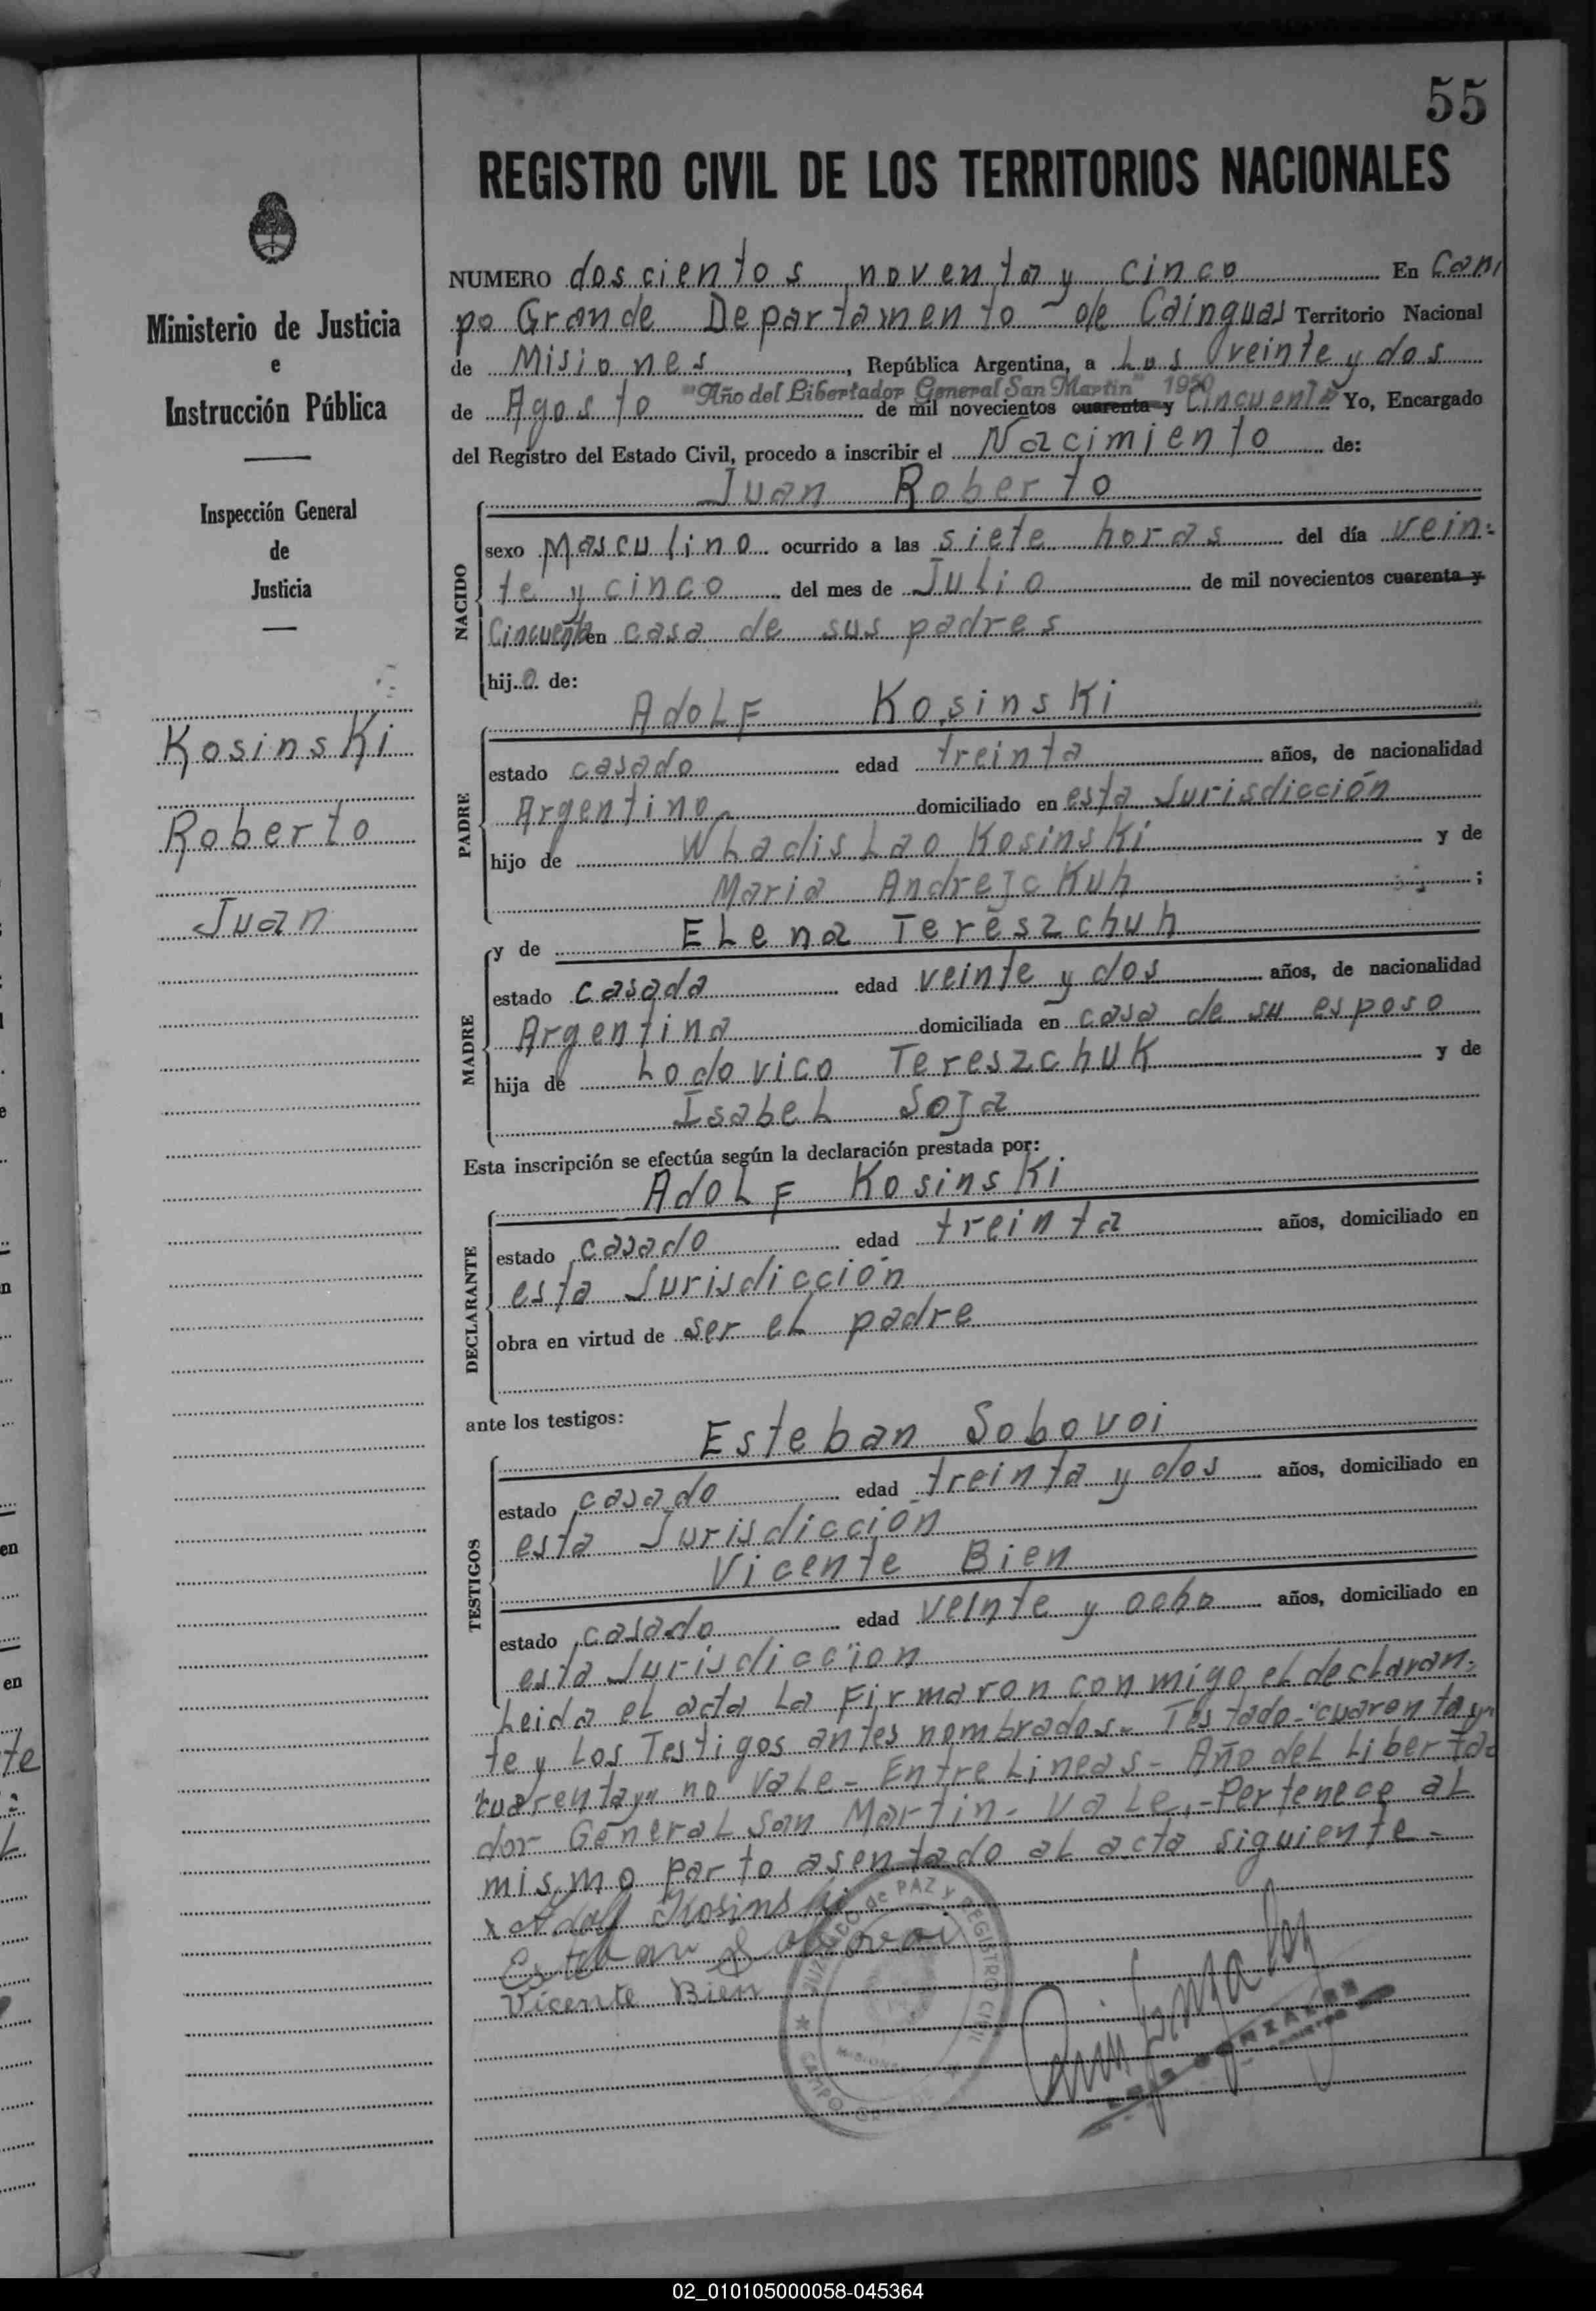 55
REGISTRO CIVIL DE LOS TERRITORIOS NACIONALES
Ministerio de Justicia
e
Instrucción Pública
Inspección General
de
Justicia
Kosinski
Roberto
Juan
NUMERO doscientos noventa y cinco En Cam
po Grande Departamento de Cainguas Territorio Nacional
de Misiones, República Argentina, a Los Veinte y dos
"Año del Libertador General San Martin" 1950
de Agosto de mil novecientos cuarenta y Cincuenta Yo, Encargado
del Registro del Estado Civil, procedo a inscribir el Nacimiento de:
Juan Roberto
NACIDO
sexo Masculino ocurrido a las siete horas del día vein-
te y cinco del mes de Julio de mil novecientos cuarenta y
Cincuenta en casa de sus padres
hijo de:
AdoLF Kosinski
PADRE
estado casado edad treinta años, de nacionalidad
Argentino domiciliado en esta Jurisdicción
hijo de WLadisLao Kosinski y de
Maria AndrejcKuh ;
y de ELena Tereszchuh
MADRE
estado casada edad veinte y dos años, de nacionalidad
Argentina domiciliada en casa de su esposo
hija de Lodovico TereszchuK y de
IsabeL Soja
Esta inscripción se efectúa según la declaración prestada por:
AdoLF Kosinski
DECLARANTE
estado casado edad treinta años, domiciliado en
esta Jurisdicción
obra en virtud de ser eL padre
ante los testigos:
Esteban Sobovoi
TESTIGOS
estado casado edad treinta y dos años, domiciliado en
esta Jurisdicción
Vicente Bien
estado casado edad veinte y ocho años, domiciliado en
esta Jurisdiccion
Leida eL acta La Firmaron con migo eL declaran-
te y Los Testigos antes nombrados- Testado-"cuarenta y"
"cuarenta y" no VaLe- Entre Lineas- Año deL Liberta-
dor GeneraL San Martin- VaLe,- Pertenece aL
mismo parto asentado aL acta siguiente-
x Adolf Kosinski
Esteban Sobovoi
Vicente Bien
JUZGADO de PAZ y REGISTRO CIVIL
MISIONES
CAMPO GRANDE
LUIS GONZALEZ
02_010105000058-045364